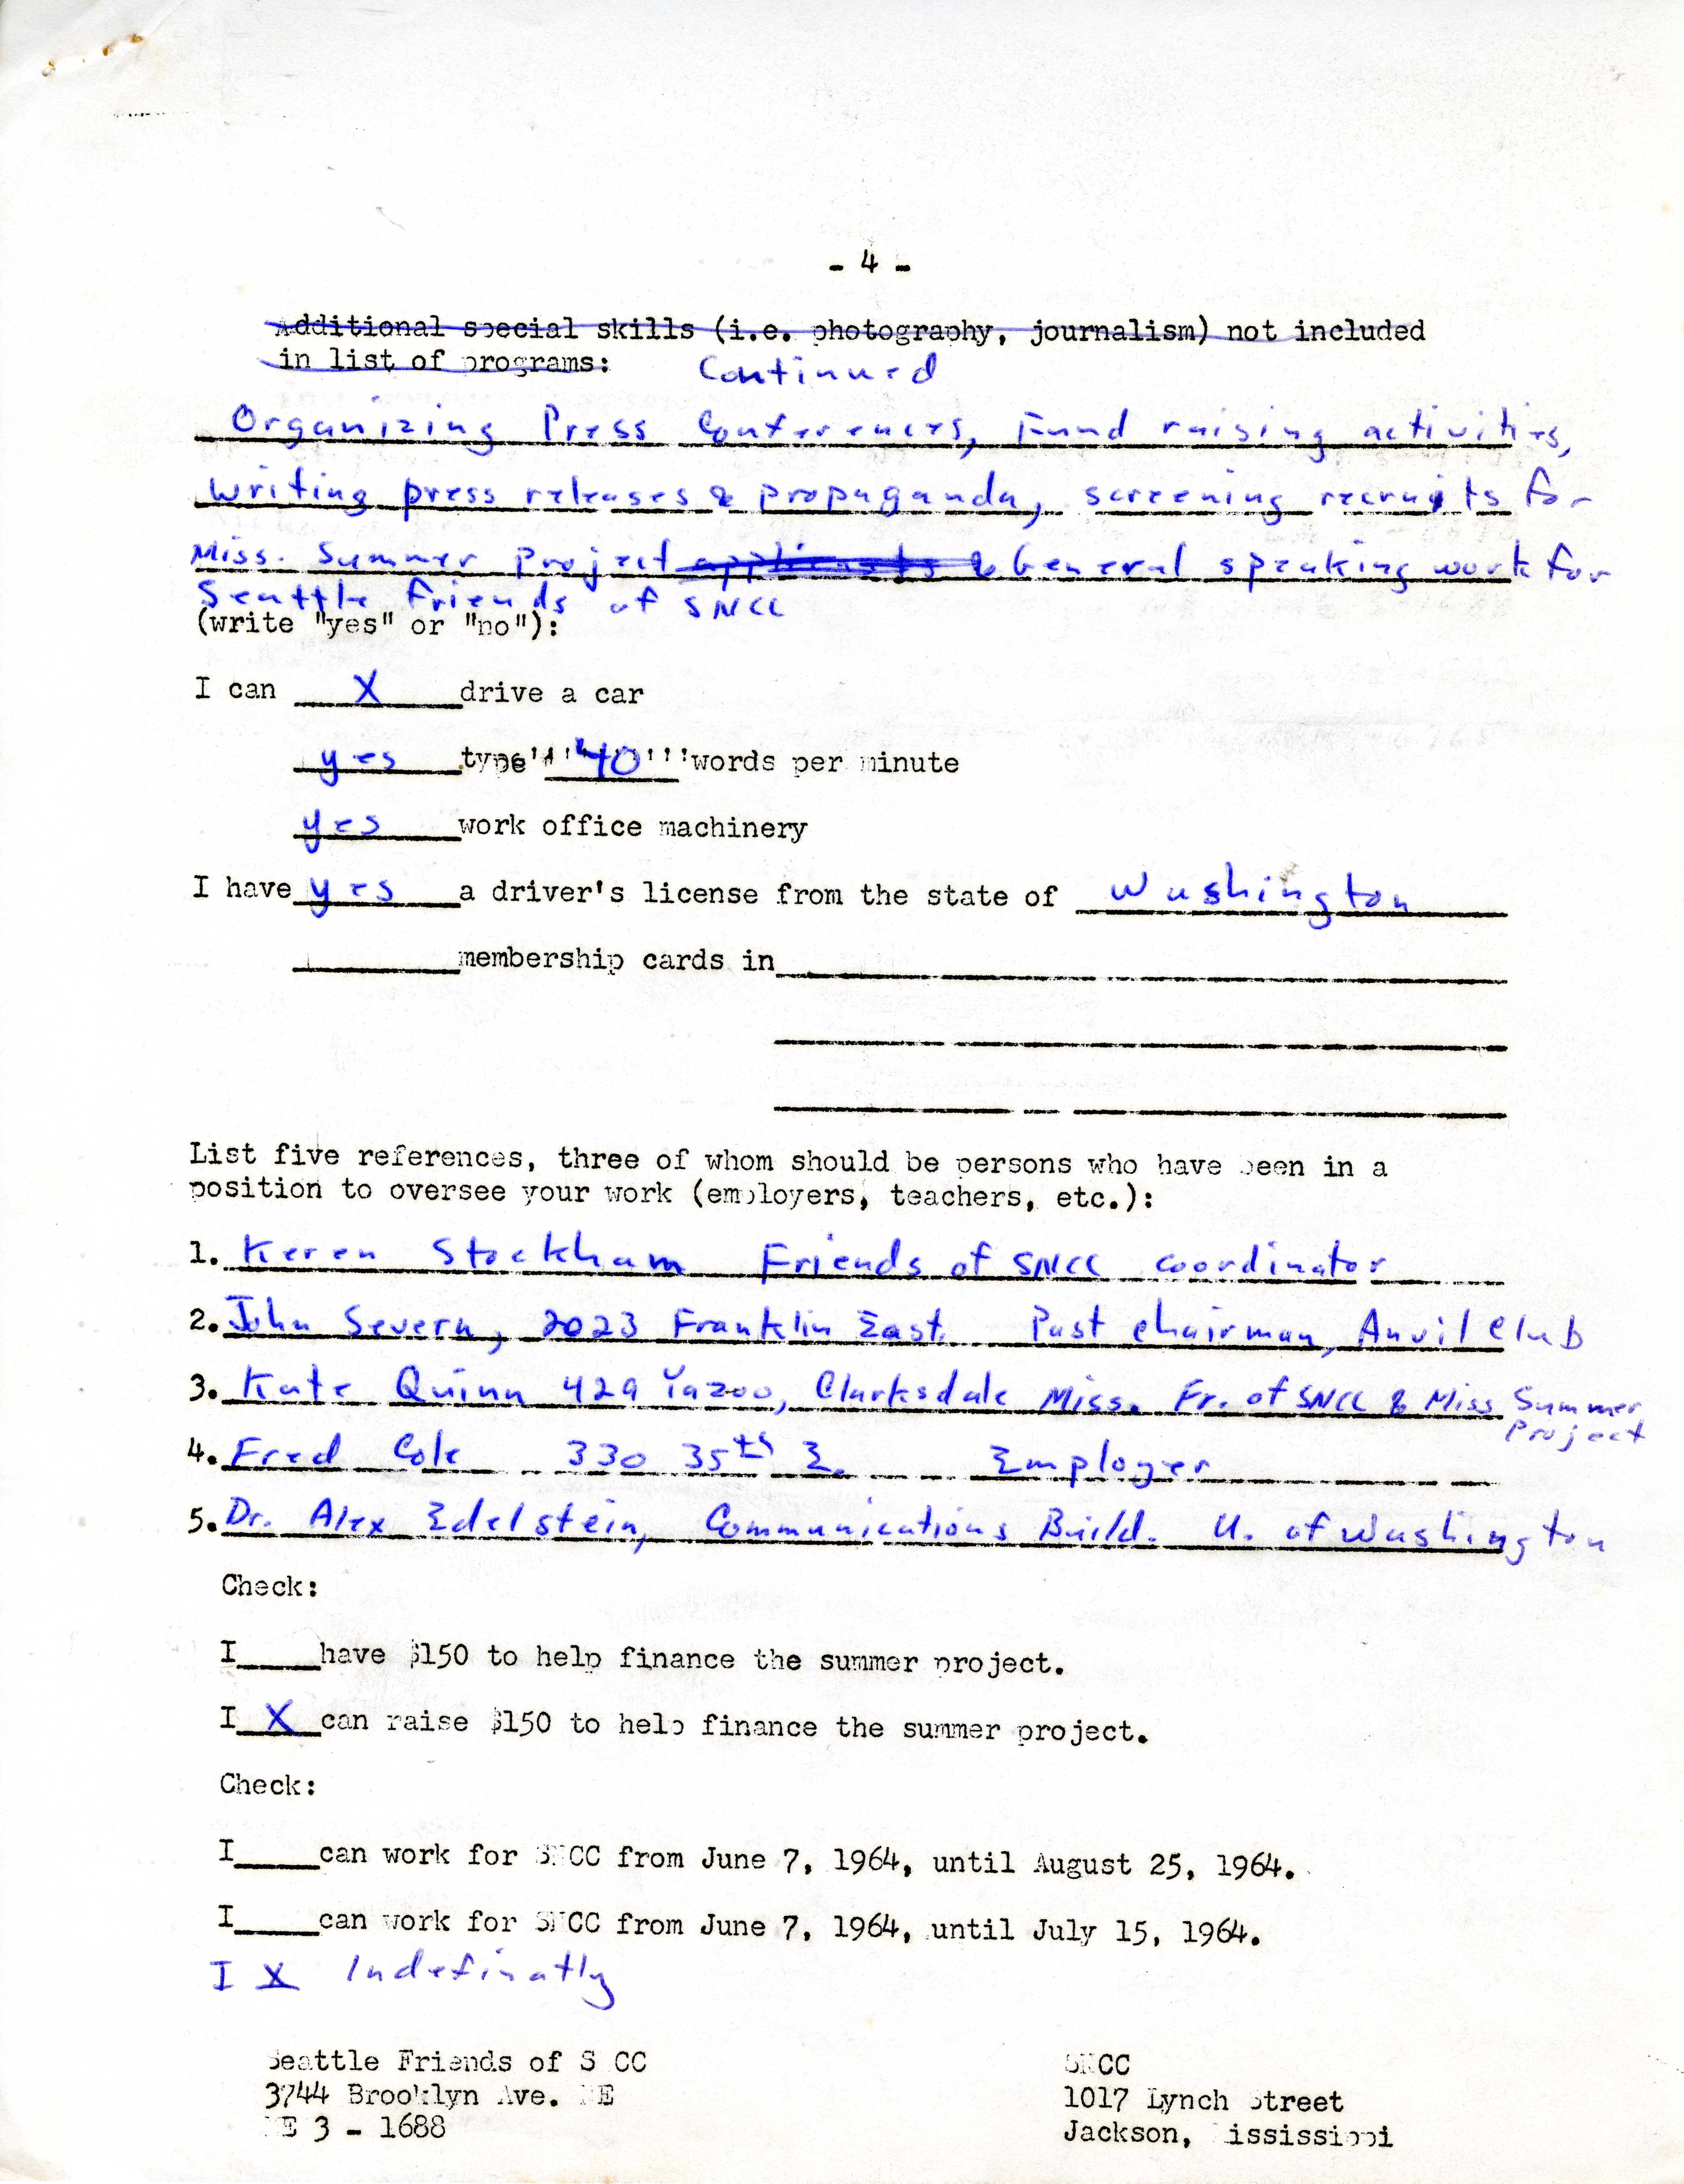 - 4 -
Additional special skills (i.e. photography, journalism) not included
in list of programs: Continued
Organizing Press Conferences, Fund raising activities,
writing press releases & propaganda, screening recruits for
Miss. Summer Project applicants & General speaking work for
Seattle Friends of SNCC
(write "yes" or "no"):
I can X drive a car
yes type 40 words per minute
yes work office machinery
I have yes a driver's license from the state of Washington
membership cards in
List five references, three of whom should be persons who have been in a
position to oversee your work (employers, teachers, etc.):
1. Keren Stockham Friends of SNCC coordinator
2. John Severn, 2023 Franklin East. Past chairman, Anvil Club
3. Kate Quinn 429 Yazoo, Clarksdale Miss. Fr. of SNCC & Miss Summer
Project
4. Fred Cole 330 35th E. Employer
5. Dr. Alex Edelstein, Communications Build. U. of Washington
Check:
I____have $150 to help finance the summer project.
I X can raise $150 to help finance the summer project.
Check:
I____can work for SNCC from June 7, 1964, until August 25, 1964.
I____can work for SNCC from June 7, 1964, until July 15, 1964.
I X Indefinatly
Seattle Friends of SNCC
3744 Brooklyn Ave. NE
ME 3 - 1688
SNCC
1017 Lynch Street
Jackson, Mississippi